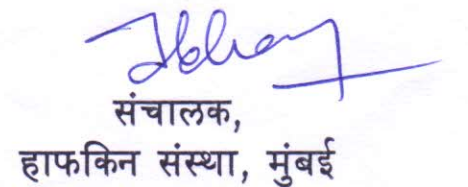 संचालक,
हाफकिन संस्था, मुंबई